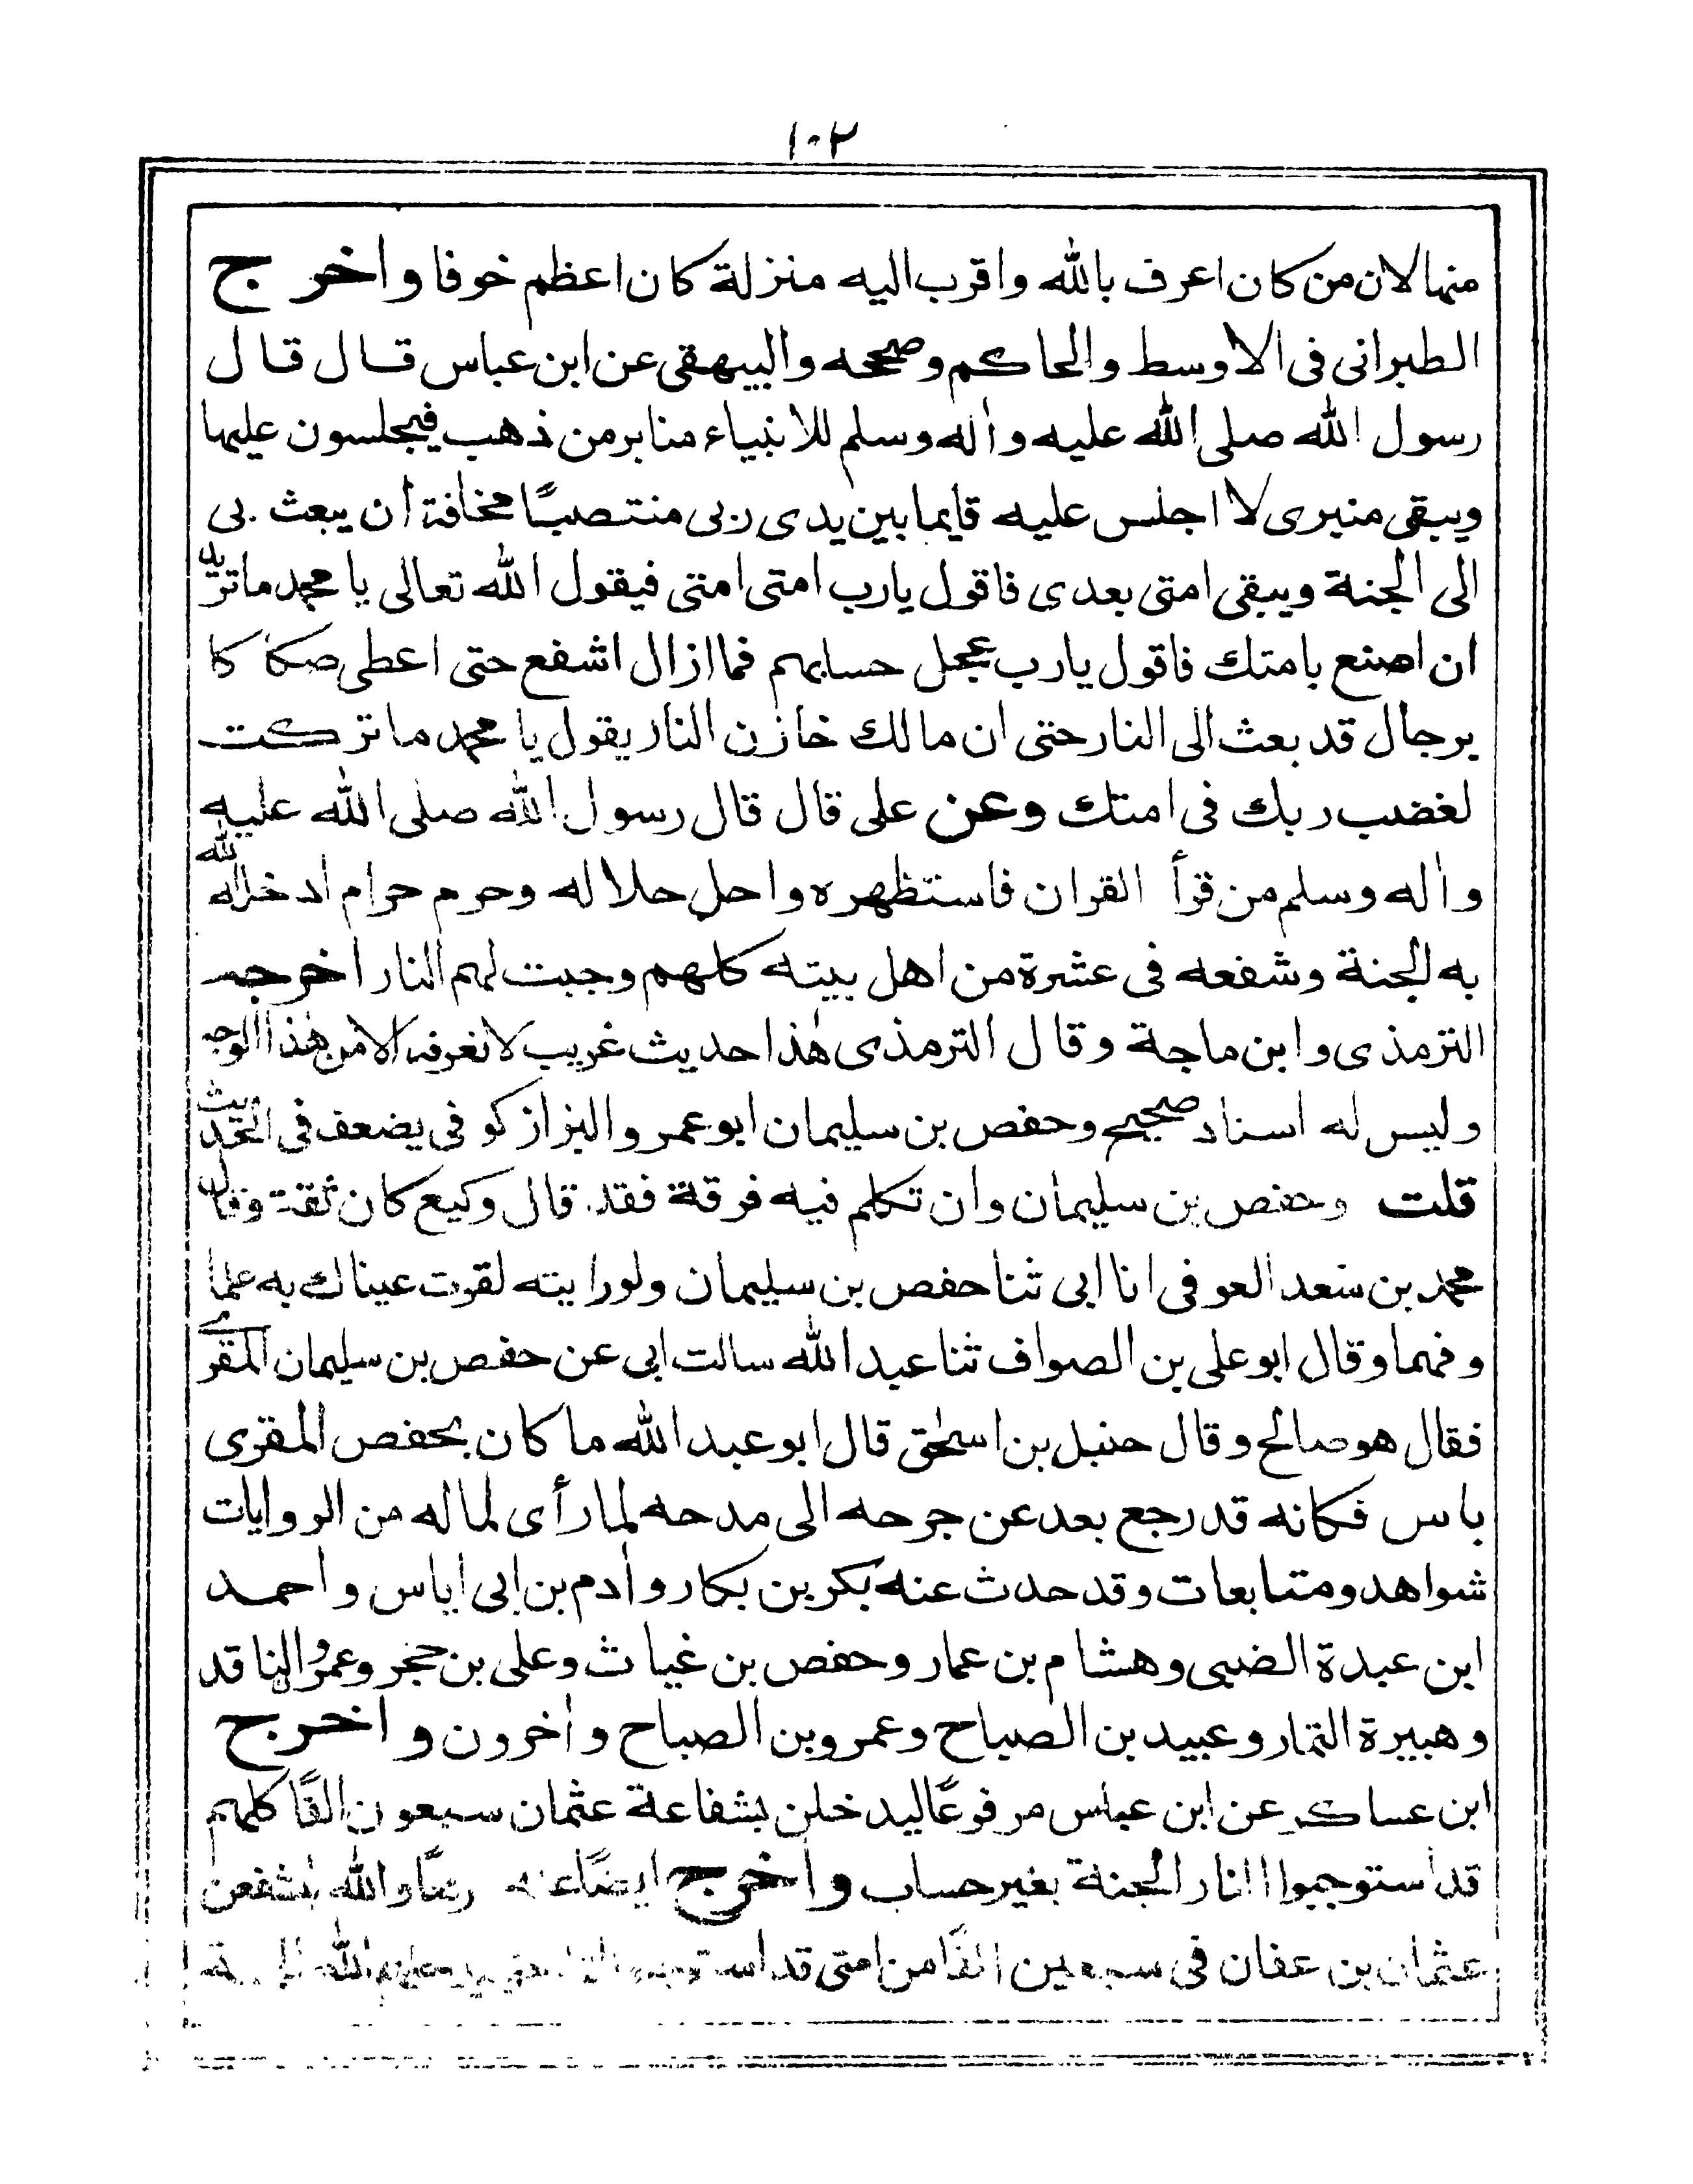 ١٠٢
منها لان من كان اعرف بالله واقرب اليه منزلة كان اعظم خوفا واخرج
الطبرانى فى الاوسط والحاكم وصححه والبيهقى عن ابن عباس قال قال
رسول الله صلى الله عليه واٰله وسلم للانبياء منابر من ذهب فيجلسون عليها
ويبقى منبرى لا اجلس عليه قايما بين يدى ربى منتصبًا مخافة ان يبعث بى
الى الجنة ويبقى امتى بعدى فاقول يارب امتى امتى فيقول الله تعالى يا محمد ما تريد
ان اصنع بامتك فاقول يارب عجل حسابهم فما ازال اشفع حتى اعطى صكا كا
برجال قد بعث الى النار حتى ان مالك خازن النار يقول يا محمد ما تركت
لغضب ربك فى امتك وعن على قال قال رسول الله صلى الله عليه
واٰله وسلم من قرأ القران فاستظهره واحل حلاله وحرم حرام ادخله الله
به الجنة وشفعه فى عشرة من اهل بيته كلهم وجبت لهم النار اخرجه
الترمذى وابن ماجة وقال الترمذى هٰذا حديث غريب لا نعرفه الا من هٰذا الوجه
وليس له اسناد صحيح وحفص بن سليمان ابو عمر والبزاز كوفى يضعف فى الحديث
قلت وحفص بن سليمان وان تكلم فيه فرقة فقد قال وكيع كان ثقة وقال
محمد بن سعد العوفى انا ابى ثنا حفص بن سليمان ولو رايته لقرت عيناك به علما
وفهما وقال ابو على بن الصواف ثنا عبد الله سالت ابى عن حفص بن سليمان المقرى
فقال هو صالح وقال حنبل بن اسحٰق قال ابو عبد الله ما كان بحفص المقرى
باس فكانه قد رجع بعد عن جرحه الى مدحه لما رأى لما له من الروايات
شواهد ومتابعات وقد حدث عنه بكر بن بكار واٰدم بن ابى اياس واحمد
ابن عبدة الضبى وهشام بن عمار وحفص بن غياث وعلى بن حجر وعمرو الناقد
وهبيرة التمار وعبيد بن الصباح وعمرو بن الصباح واٰخرون واخرج
ابن عساكر عن ابن عباس مرفوعًا ليدخلن بشفاعة عثمان سبعون الفًا كلهم
قد استوجبوا النار الجنة بغير حساب واخرج ايضًا عنه رفعًا والله ليشفعن
عثمان بن عفان فى سبعين الفًا من امتى قد استوجبوا النار